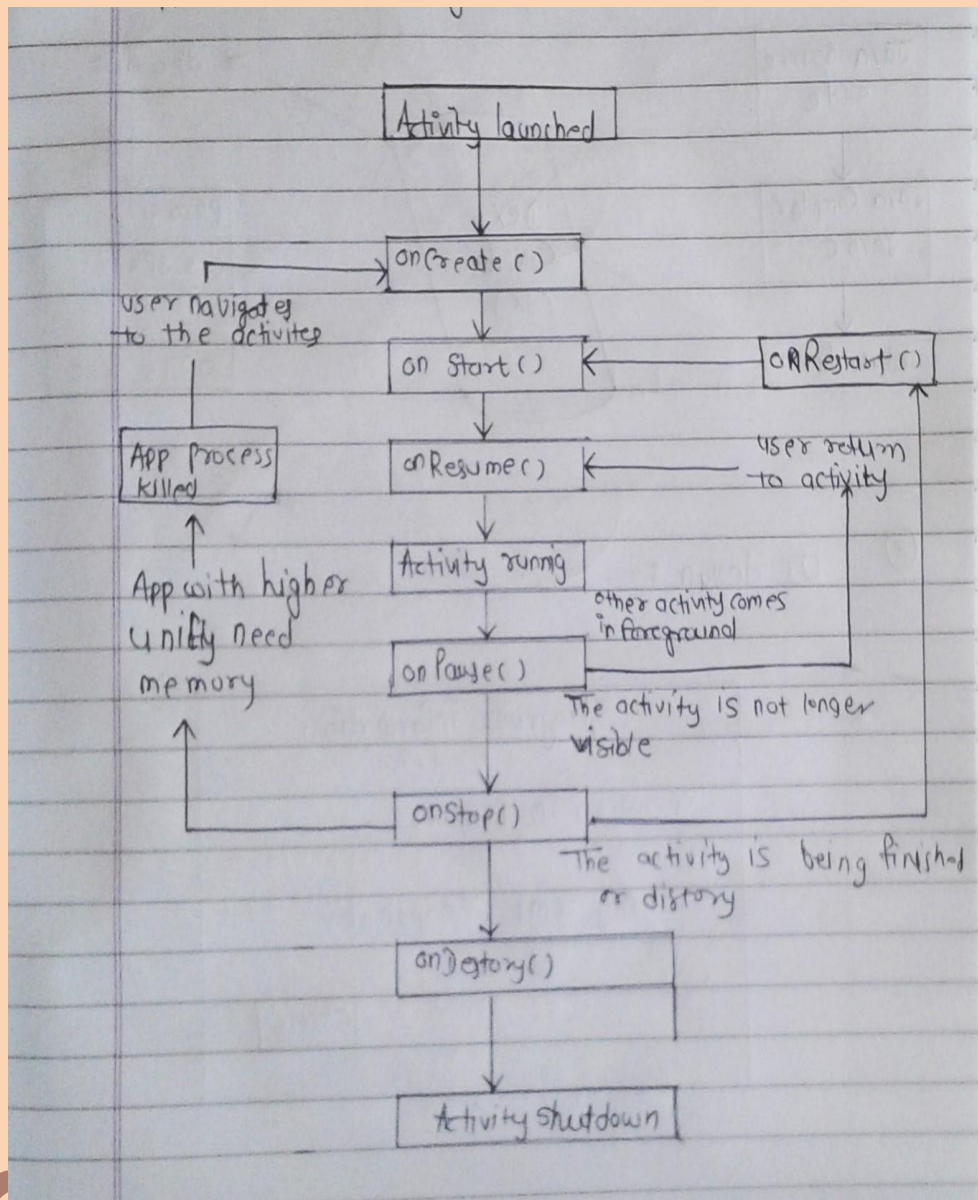 Activity launched
onCreate()
user navigates
to the activites
on Start()
onRestart()
App Process
killed
onResume()
user return
to activity
Activity runnig
App with higher
need
memory
other activity comes
in foreground
onPause()
The activity is not longer
visible
onStop()
The activity is being finished
or distory
onDestory()
Activity shutdown